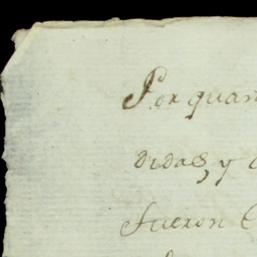 Por quan
didas, y
fueron